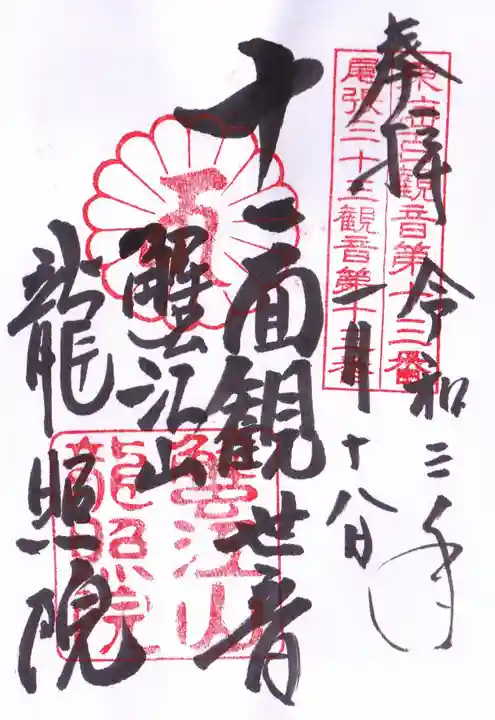 奉拝 令和二年
一月十八日
観音第十三番
尾張三十三観音第十三番
十一面観世音
蟹江山
龍照院
蟹江山
龍照院